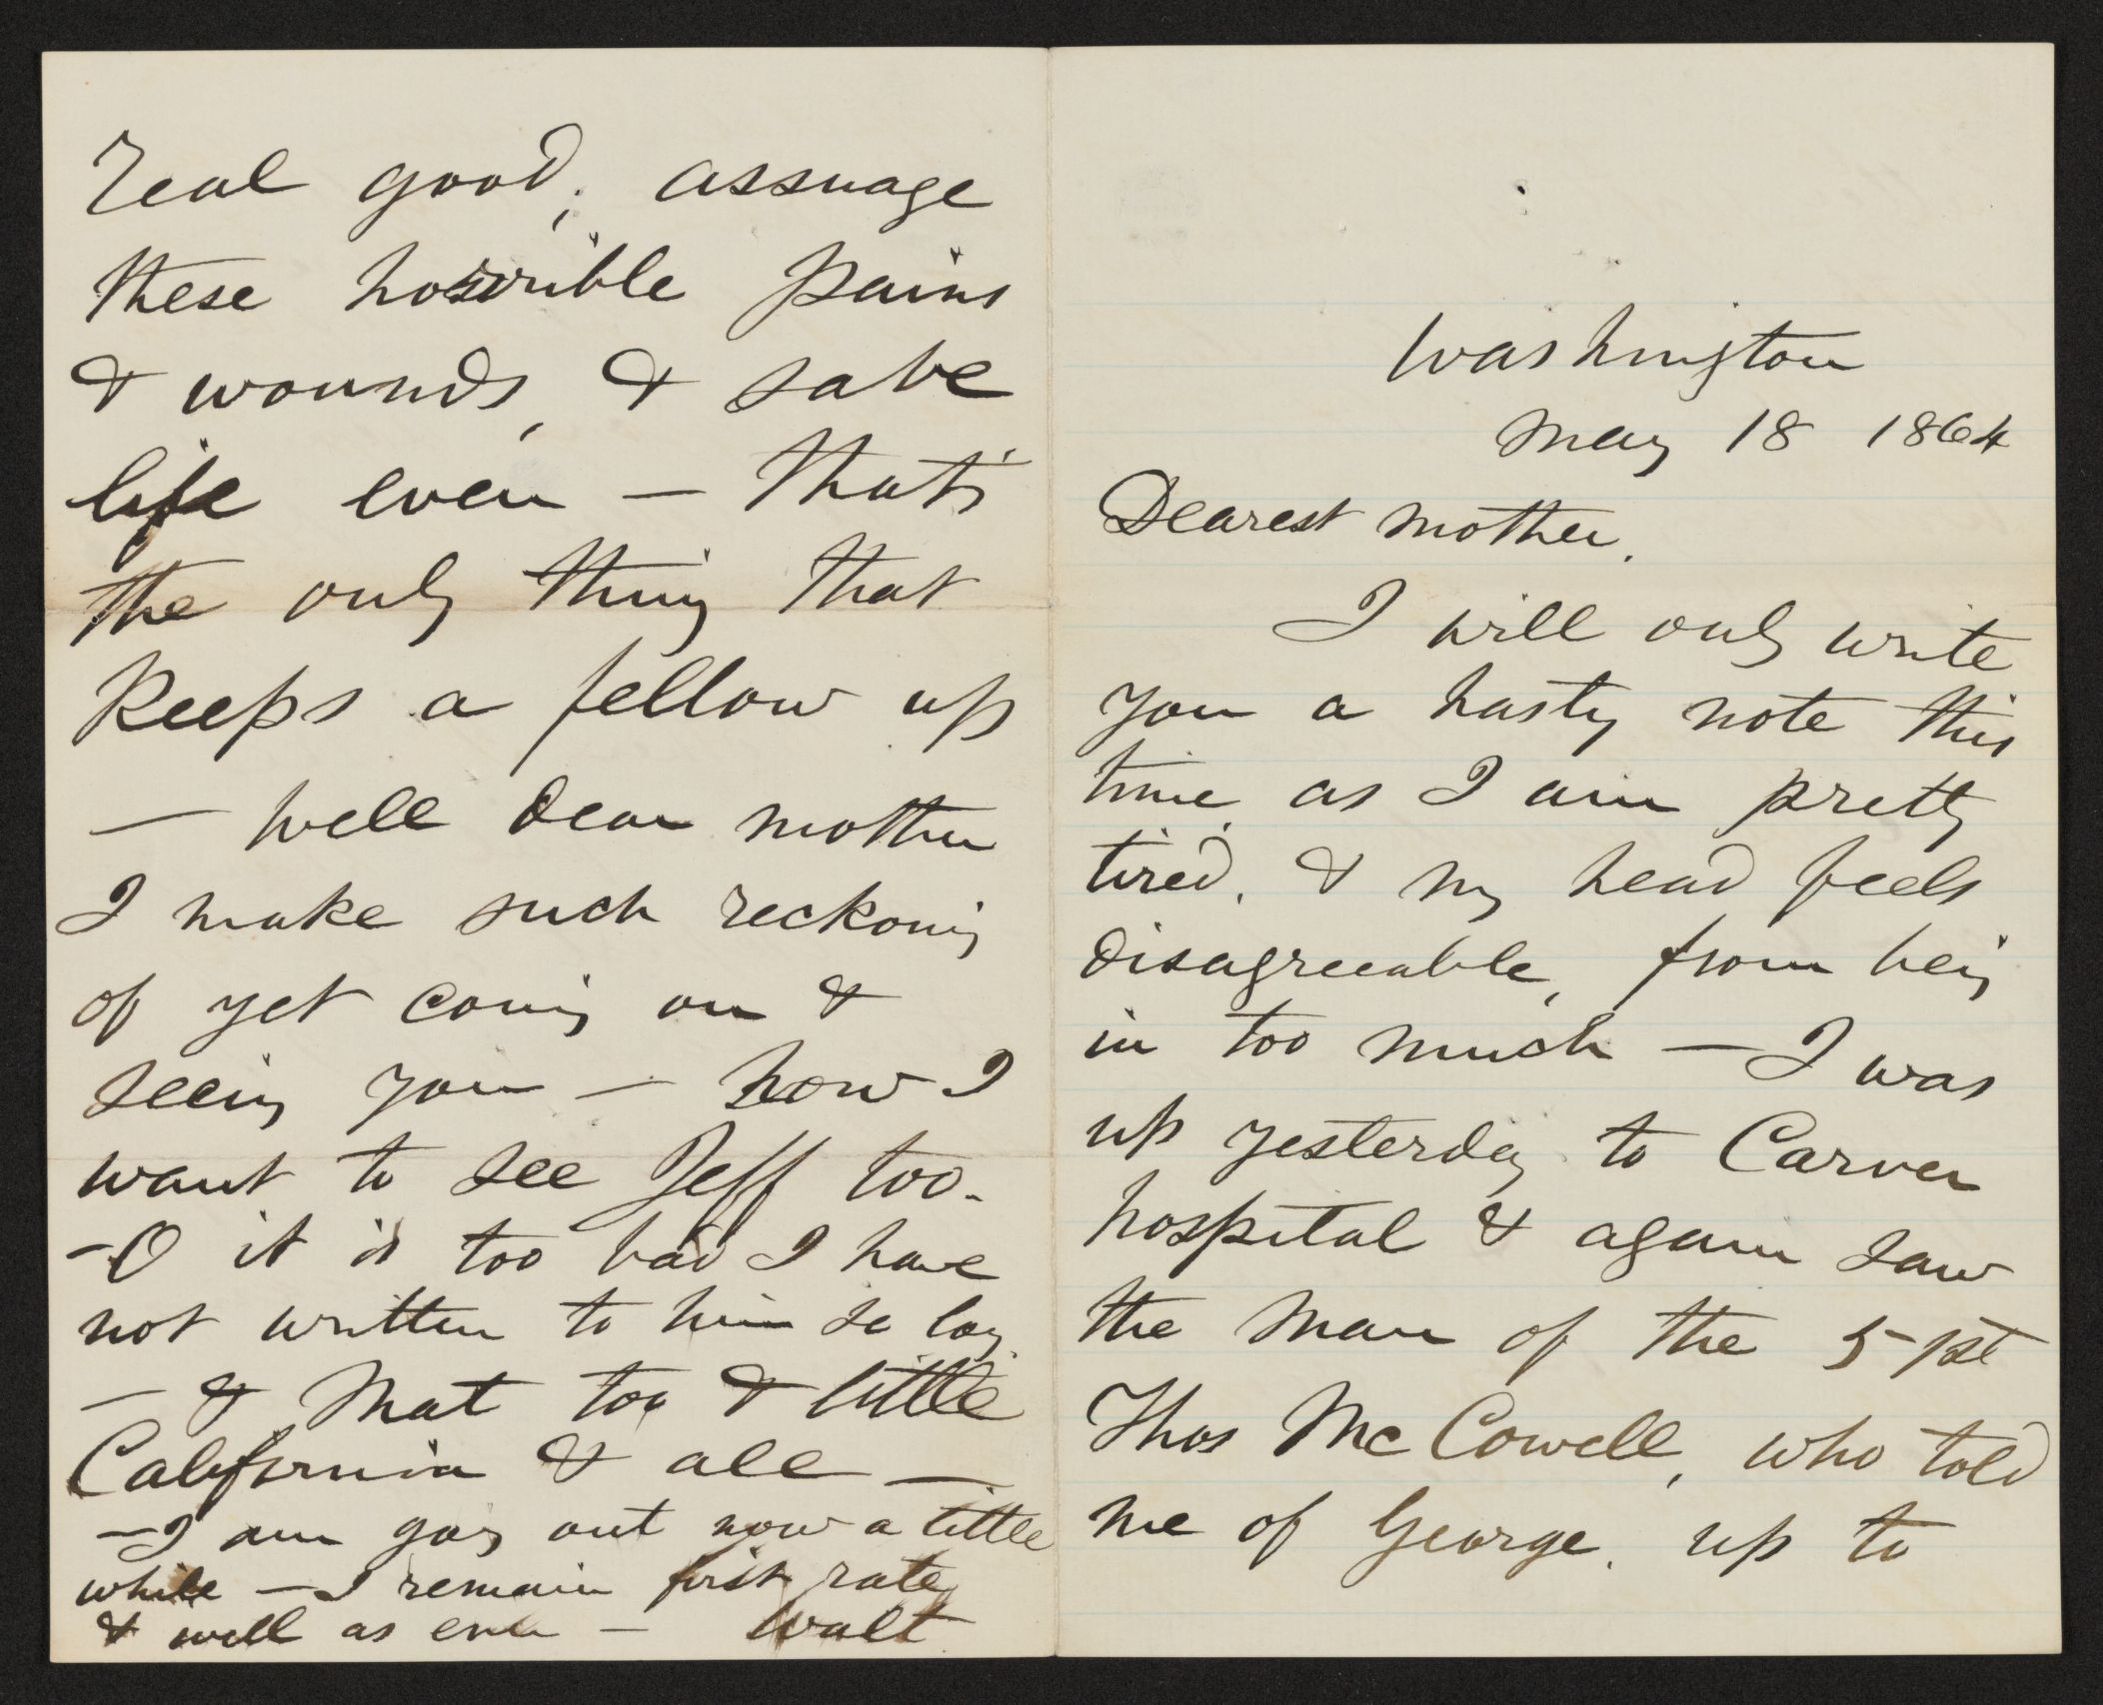 Washington
May 18 1864
Dearest mother,
I will only write
you a hasty note this
time, as I am pretty
tired, & my head feels
disagreeable, from being
in too much — I was
up yesterday to Carver
hospital & again saw
the man of the 51st
Thos McCowell, who told
me of George, up to
real good, assuage
these horrible pains
& wounds, & save
life even — that's
the only thing that
keeps a fellow up
— well dear mother
I make such reckoning
of yet coming on &
seeing you — how I
want to see Jeff too—
—O it is too bad I have
not written to him so long
— & Mat too & little
California & all —
—I am going out now a little
while — I remain first rate,
& well as ever — Walt